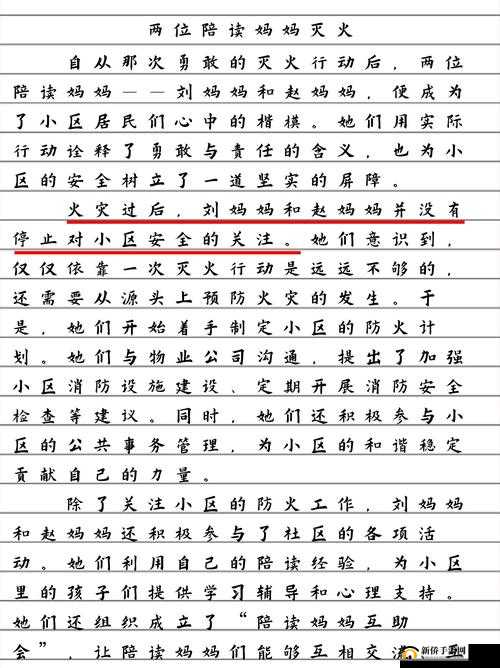 两位陪读妈妈灭火
自从那次勇敢的灭火行动后，两位
陪读妈妈——刘妈妈和赵妈妈，便成为
了小区居民们心中的楷模。她们用实际
行动诠释了勇敢与责任的含义，也为小
区的安全树立了一道坚实的屏障。
火灾过后，刘妈妈和赵妈妈并没有
停止对小区安全的关注。她们意识到，
仅仅依靠一次灭火行动是远远不够的，
还需要从源头上预防火灾的发生。于
是，她们开始着手制定小区的防火计
划。她们与物业公司沟通，提出了加强
小区消防设施建设、定期开展消防安全
检查等建议。同时，她们还积极参与小
区的公共事务管理，为小区的和谐稳定
贡献自己的力量。
除了关注小区的防火工作，刘妈妈
和赵妈妈还积极参与了社区的各项活
动。她们利用自己的陪读经验，为小区
里的孩子们提供学习辅导和心理支持。
她们还组织成立了“陪读妈妈互助
会”，让陪读妈妈们能够互相交流、互
新侨手游网